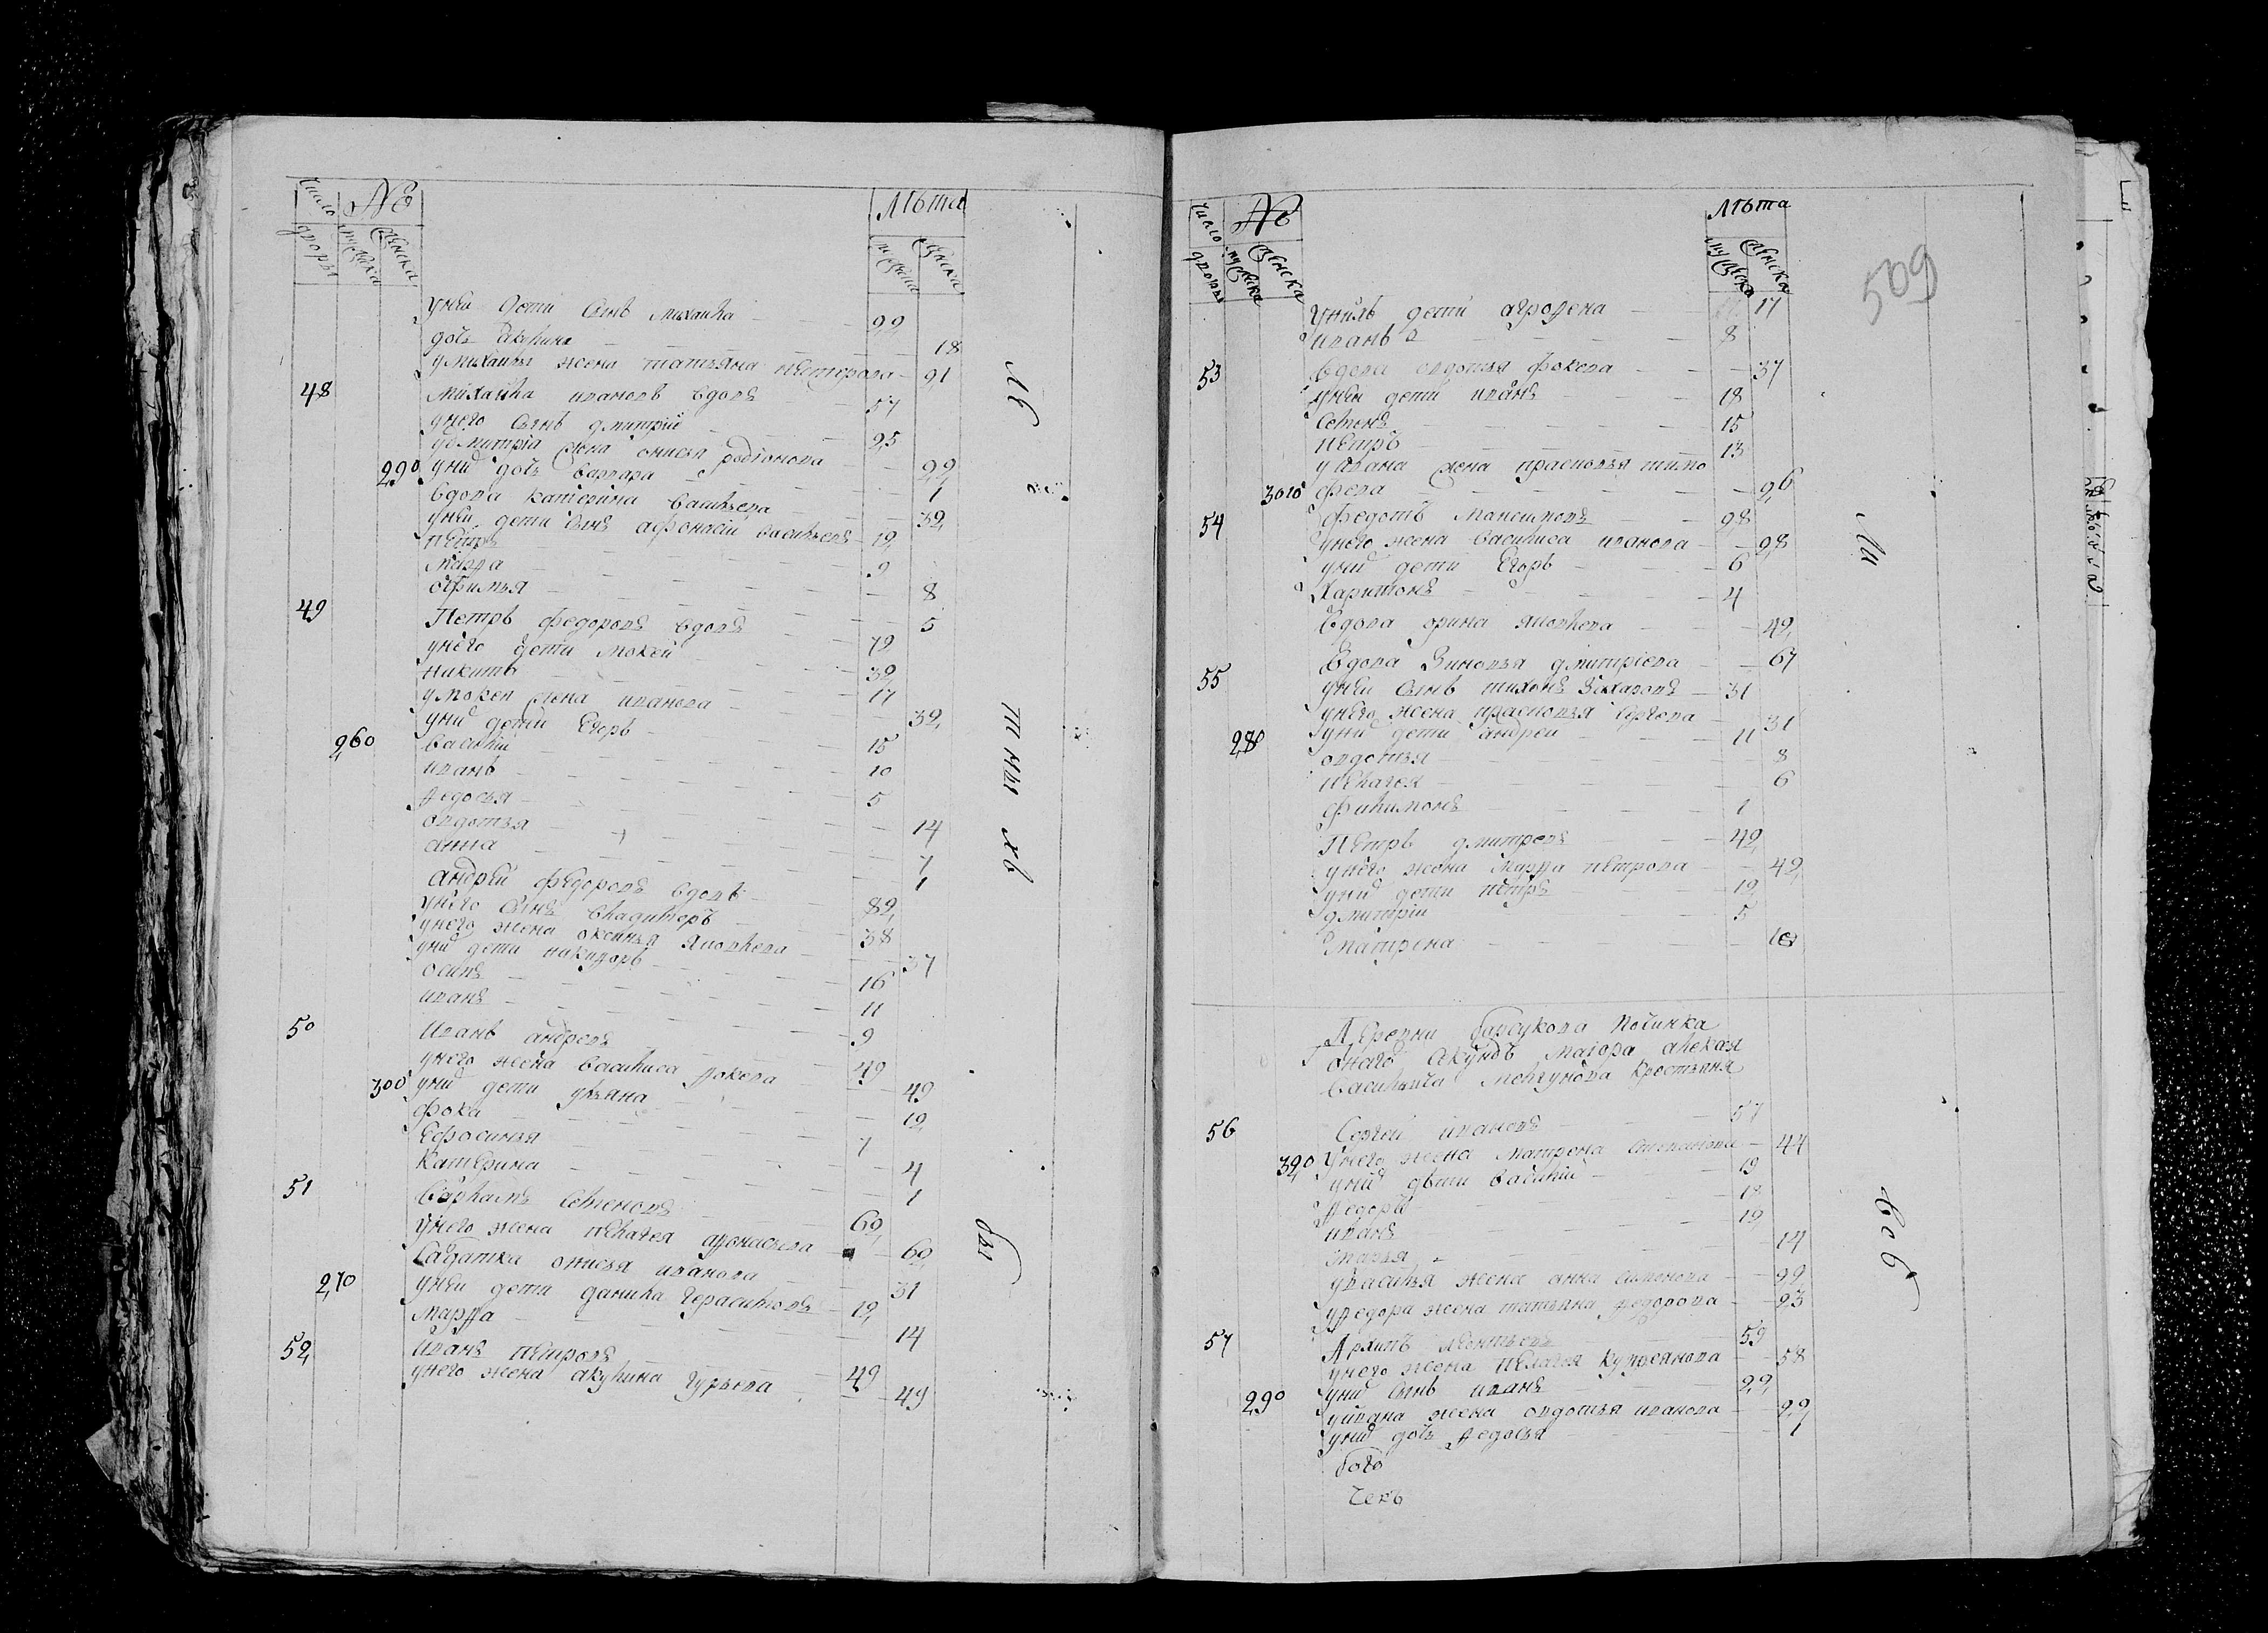 Число дворы № мужска женска Лѣта мужска женска
унеи дети сынъ михаила 22
дочь 18
умихаилы жена татьяна петрова 21
48 михаила ивановъ вдовъ 57
унего сынъ дмитрий 25
удмитрiа жена анисья родiонова 22
290 унихъ дочь варвара 1
вдова катерина васильева 32
унеи дети сынъ афонасiй васильевъ 12
петръ 9
марфа 8
офимья 5
49 Петръ федоровъ вдовъ 72
унего дети мокей 32
никита 17
умокея жена иванова 32
унихъ дети егоръ 15
260 василiй 10
иванъ 5
федосья 14
овдотья 7
анна 1
андрей федоровъ вдовъ 82
унего сынъ владимеръ 38
унего жена оксинья яковлева 37
унихъ дети никифоръ 16
осипъ 11
иванъ 9
50 Иванъ андреевъ 49
унего жена василиса фокева 49
300 унихъ дети ульяна 12
фока 7
ефросинья 4
катерина 1
51 варламъ семеновъ 62
унего жена пелагея афонасьева 62
салдатка анисья иванова 31
270 унеи дети данила герасимовъ 12
марфа 14
52 иванъ петровъ 49
унего жена акулина гурьева 49
ЛѢ
тны хъ
бы
Число дворы № мужска женска Лѣта мужска женска
509
унихъ дети агрофена 17
иванъ 8
53 вдова овдотья фокева 37
унеи дети иванъ 18
семенъ 15
петръ 13
уивана жена прасковья тимо
3010 феева 26
54 федотъ максимовъ 28
унего жена василиса иванова 28
унихъ дети егоръ 6
харитонъ 4
вдова орина яковлева 42
вдова зиновья дмитрiева 67
55 унеи сынъ тихонъ захаровъ 31
унего жена прасковья сергева 31
280 унихъ дети андреи 11
овдотья 8
пелагея 6
филимонъ 1
Петръ дмитревъ 42
унего жена марфа петрова 42
унихъ дети петръ 12
дмитрiи 5
матрена 10
Деревни барсукова починка
онаго секундъ маiора алексея
васильича молгунова крестьяня
56 Сергей ивановъ 57
320 унего жена матрона 44
унихъ дѣти василiй 19
федоръ 18
иванъ 12
марья 14
увасилья жена анна симонова 22
уфедора жена татьяна федорова 23
57 Архипъ леонтьевъ 59
унего жена пелагея куприянова 58
290 унихъ сынъ иванъ 22
уивана жена овдотья иванова 22
унихъ дочь федосья 1
бого
чекъ